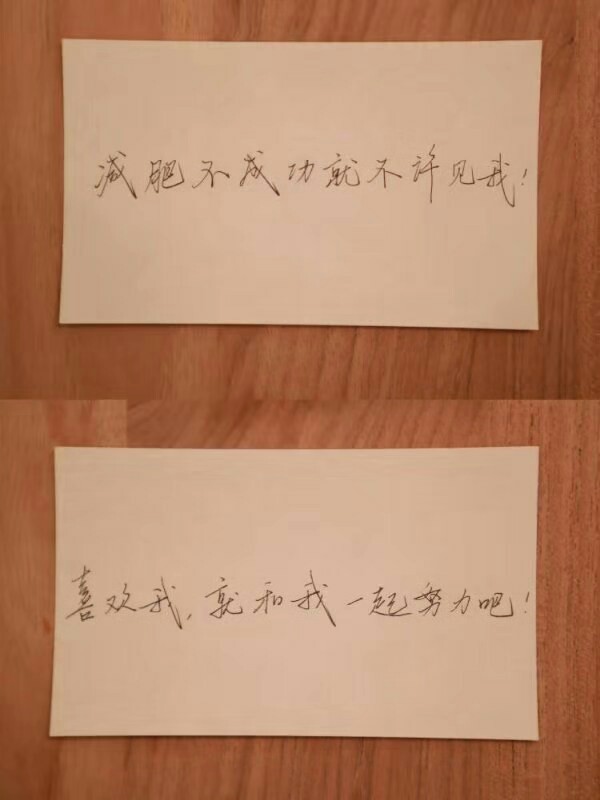 减肥不成功就不许见我!
喜欢我,就和我一起努力吧!